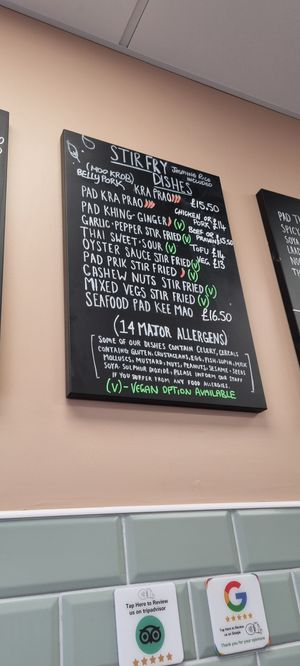 STIRFRY
DISHES
JASMINE RICE
INCLUDED
(MOO KROB) KRA PRAO £15.50
BELLY PORK
PAD KRA PRAO CHICKEN OR £14
PORK
PAD KHING-GINGER (V) BEEF OR £15.50
PRAWN
GARLIC-PEPPER STIR FRIED (V) TOFU £14
THAI SWEET-SOUR (V) VEG £13
OYSTER SAUCE STIR FRIED (V)
PAD PRIK STIR FRIED (V)
CASHEW NUTS STIR FRIED (V)
MIXED VEGS STIR FRIED (V)
SEAFOOD PAD KEE MAO £16.50
(14 MATOR ALLERGENS)
SOME OF OUR DISHES CONTAIN CELERY, CEREALS
CONTAING GLUTEN, CRUSTACEANS, EGG, FISH, LUPIN, MILK
MOLLUSCS, MUSTARD, NUTS, PEANUTS, SESAME-SEEDS
SOYA, SULPHUR DIOXIDE, PLEASE INFORM OUR STAFF
IF YOU SUFFER FROM ANY FOOD ALLERGIES.
(V)-VEGAN OPTION AVAILABLE
PAD T
SPICY
Tap Here to Review
us on tripadvisor
G
Tap Here to Review
us on Google
Thank you for your opinions